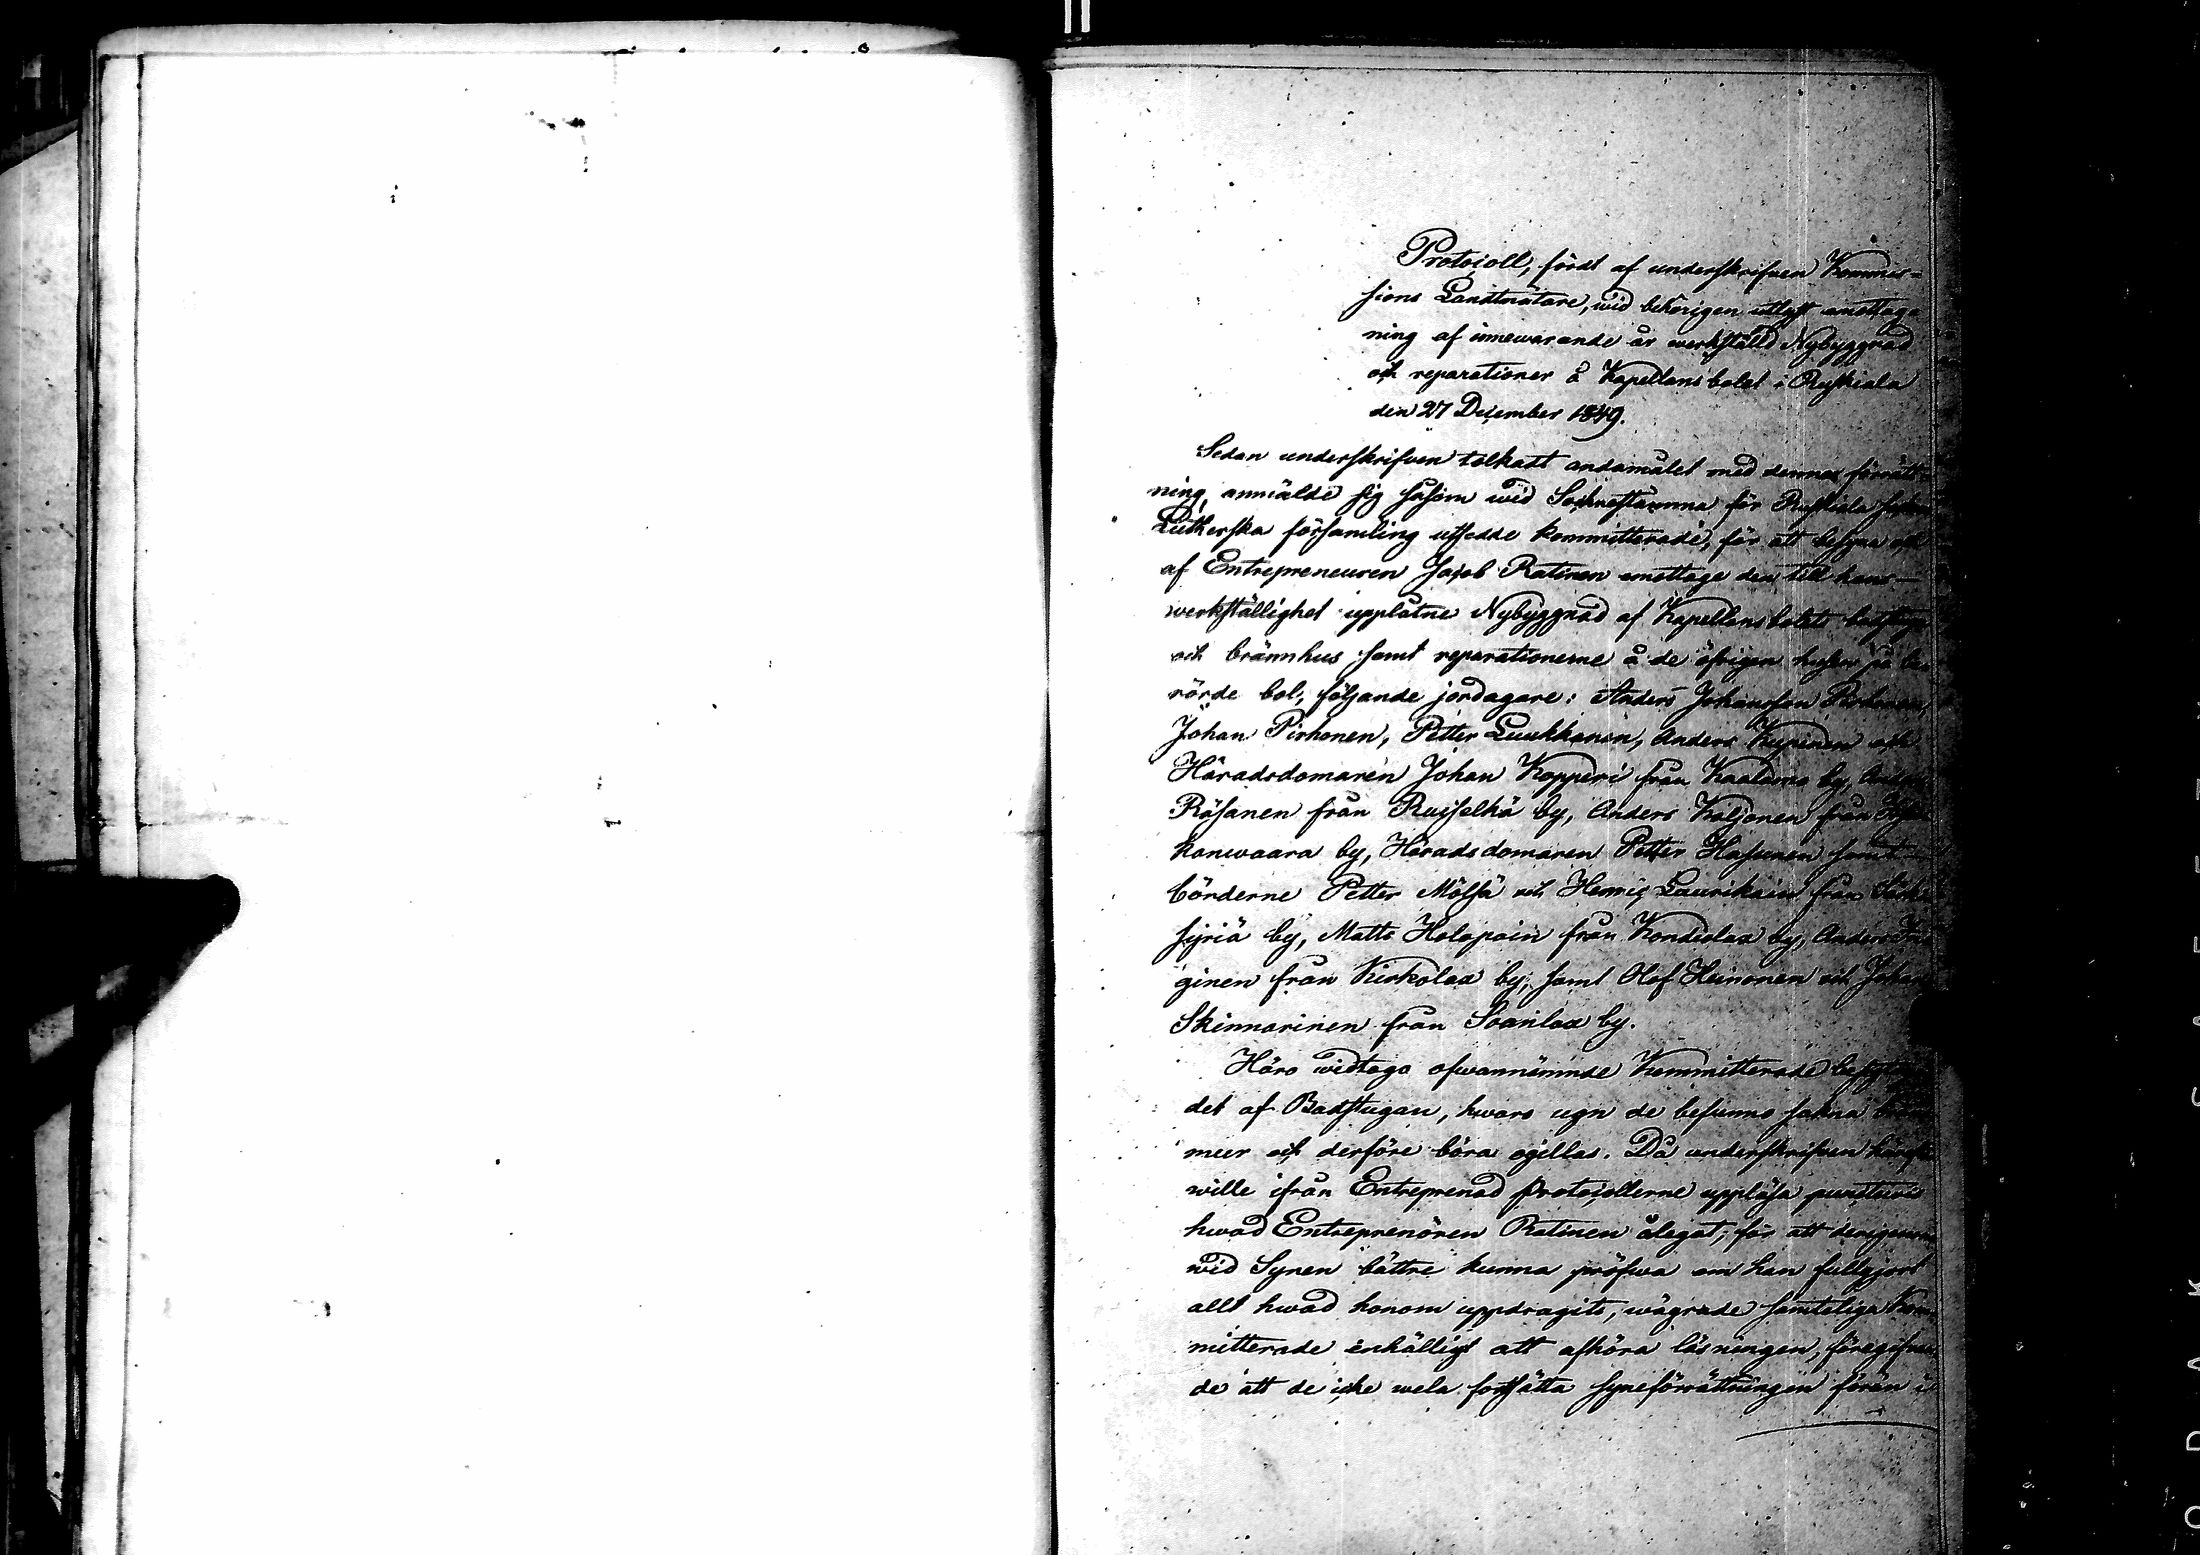 Protocoll, fördt af underskrifven Kommis-
sions Landtmätare, wid behörigen utlyst emottag-
ning af innewarande år werkställd Nybyggnad
och reparationer å Kapellans bolet i Ruskiala
den 27 December 1849.
Sedan underskrifven tolkadt ändamålet med denna förrätt-
ning, anmälde sig såsom wid Sockenstämma för Ruskiala
Lutherska församling utsedde kommitterade, för att besyna och
af Entrepreneuren Jacob Ratinen emottaga den till hans
werkställighet upplåtne Nybyggnad af Kapellans bolets badstuga
och brännhus samt reparationerne å de öfrigen husen på be-
rörde bol, följande jordagare: Anders Johansson Pirhonen,
Johan Pirhonen, Petter Luukkanen, Anders Kupinen och
Häradsdomaren Johan Kopperi från Kaalamo by, Anders
Räsanen från Ruisselkä by, Anders Koljonen från
kanwaara by, Häradsdomaren Petter Hasunen samt
bönderne Petter Mölsä och Henric Laurikain från Särki
syriä by, Matts Holopain från Kondiolax by, Anders
ginen från Kirkolax by, samt Olof Heinonen och Johan
Skinnarinen från Soanlax by.
Häro widtogo ofwannämnde Kommitterade
det af Badstugan, hwars ugn de befunno sakna bran
mur och derföre böra ogillas. Då underskrifven
wille ifrån Entreprenad Protocollerne uppläsa punctwis
hwad Entreprenören Ratinen ålegat, för att derigenom
wid Synen bättre kunna pröfwa om han fullgjort
allt hwad honom uppdragits, wägrade samteliga Kom-
mitterade enhälligt att afhöra läsningen, föregifwan-
de att de icke wela fortsätta syneförrättningen förän i